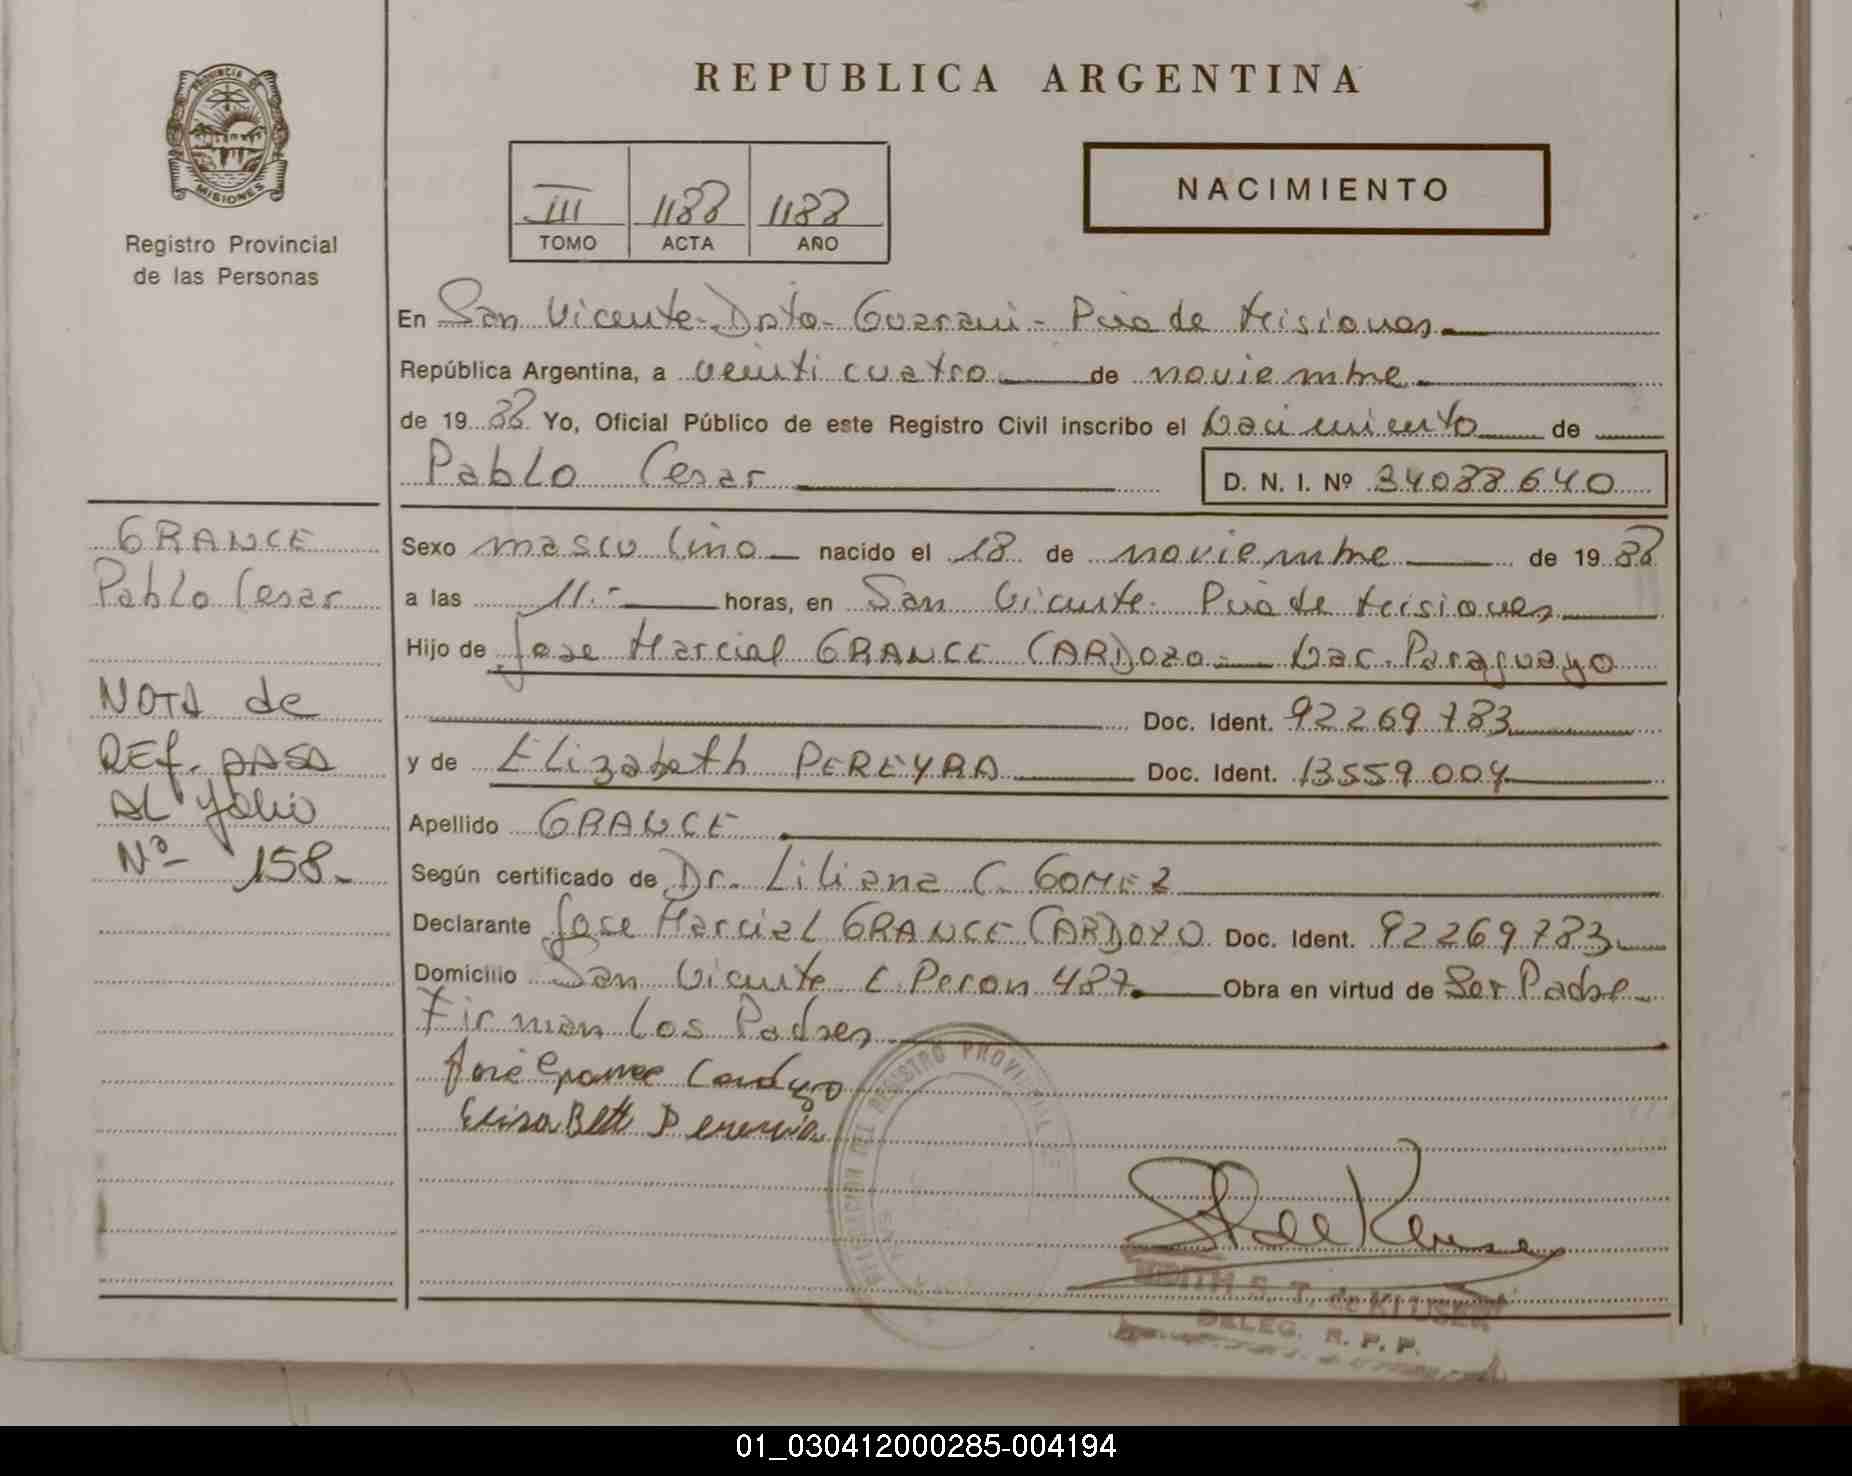 PROVINCIA DE
MISIONES
Registro Provincial
de las Personas
REPUBLICA ARGENTINA
III 1188 1188
TOMO ACTA AÑO
NACIMIENTO
En San Vicente - Dpto - Guarani - Pcia de Misiones
República Argentina, a veinti cuatro de noviembre
de 19 88 Yo, Oficial Público de este Registro Civil inscribo el Nacimiento de
Pablo Cesar D. N. I. Nº 34088640
Sexo masculino nacido el 18 de noviembre de 19 88
a las 11.- horas, en San Vicente - Pcia de Misiones
Hijo de Jose Marcial GRANCE CARDOZO - Nac. Paraguayo
Doc. Ident. 92269783
y de Elizabeth PEREYRA Doc. Ident. 13559004
Apellido GRANCE
Según certificado de Dr. Liliana C. GOMEZ
Declarante Jose Marcial GRANCE CARDOZO Doc. Ident. 92269783
Domicilio San Vicente C. Peron 487 Obra en virtud de Ser Padre
Firman los Padres
José Grance Cardozo
ElisaBett Pereyra
GRANCE
Pablo Cesar
NOTA de
REf. pASA
AL folio
Nº 158
REGISTRO PROVINCIAL DE
EDITH S. T. de KLUSER
DELEG. R. P. P.
01_030412000285-004194